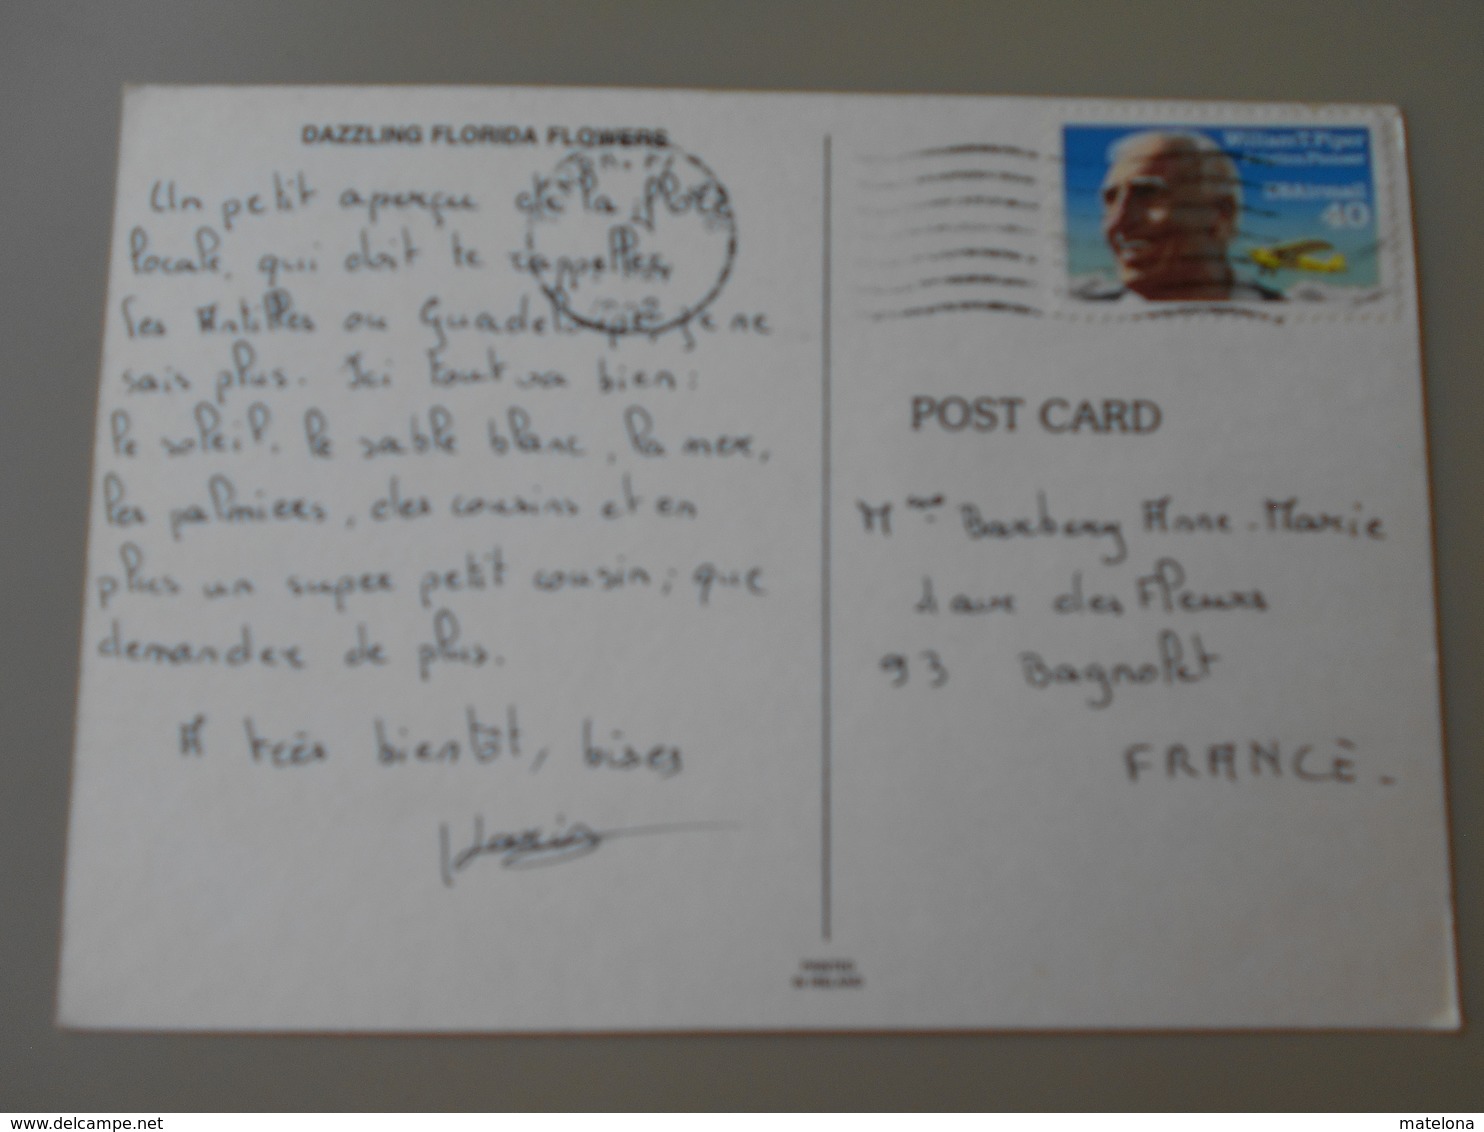 DAZZLING FLORIDA FLOWERS
Un petit aperçu de la flore
locale, qui doit te rappeller
les Antilles ou Guadeloupe, je ne
sais plus. Ici tout va bien :
le soleil. le sable blanc, la mer,
les palmiers, des cousins et en
plus un super petit cousin ; que
demander de plus.
A très bientôt, bises
William T. Piper
Aviation Pioneer
USAirmail
40
POST CARD
Mme Barbery Anne-Marie
des Fleurs
93 Bagnolet
FRANCE.
PRINTED
IN IRELAND
delcampe.net
matelona